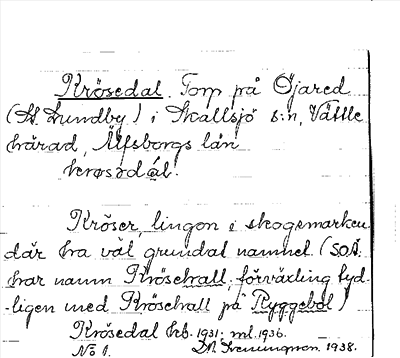 Krösedal. Torp på Öjared
(St. Lundby) i Skallsjö s:n, Vättle
härad, Älfsborgs län
krøsǝdál.
Kröser, lingon i skogsmarken
där ha väl grundat namnet. (SOÄ.
har namn Kröselvall, förväxling tyd-
ligen med Kröselvall på Ryggebol)
Krösedal krb. 1931. ml. 1936.
No 1. 1938.